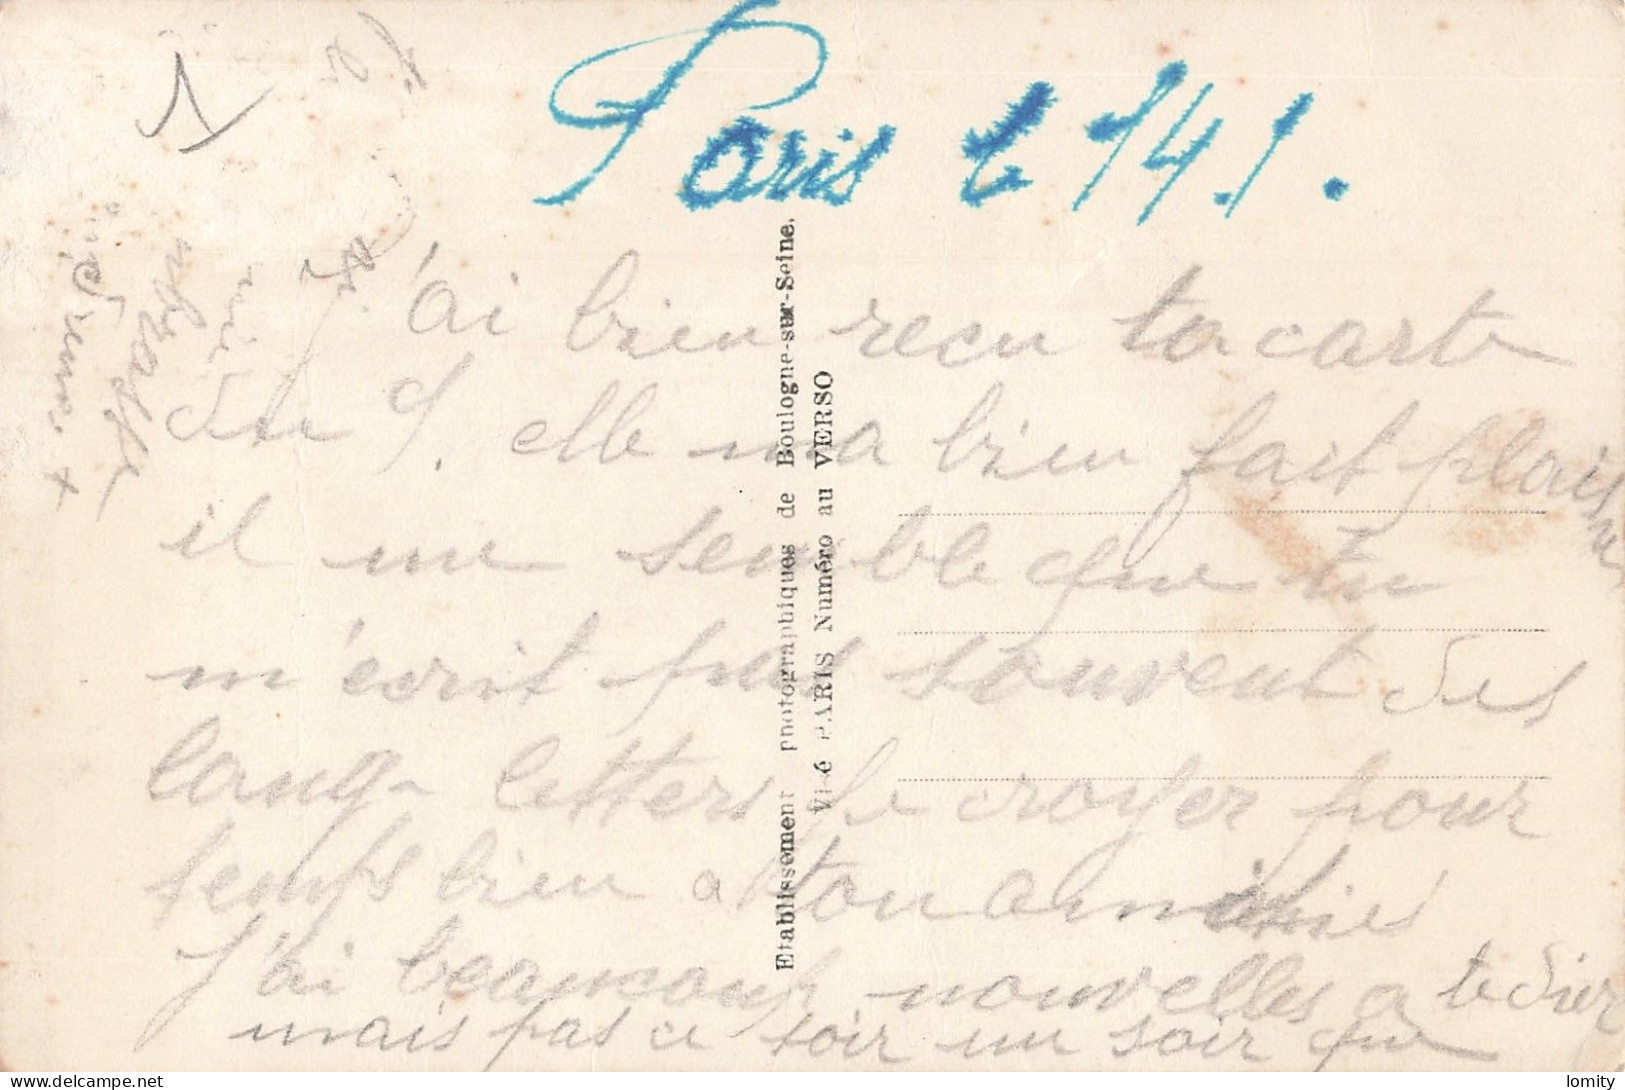 1
Paris le 14.1.
J'ai bien recu ta carte
du 9. elle ma bien fait plaisir
il me semble que tu
m'ecrit pas souvent des
long letters je croyer pour
temps bien a ton amitiés
J'ai beaucoup nouvelles a te dier
mais pas ce soir un soir que
Etablissement photographiques de Boulogne-sur-Seine.
Visé PARIS Numéro au VERSO
delcampe.net
lomity